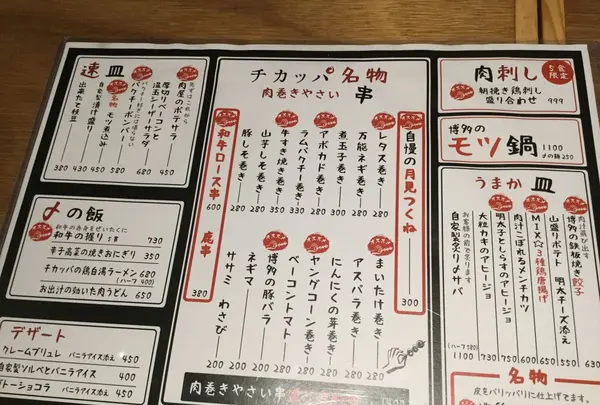 速皿
まずはこれから
肉屋のポテサラ
厚切りベーコンと
温玉シーザーサラダ
パクチー好きには堪らない
パクチーボンバー
名物 モツ煮込み
自家製漬け盛り
出来たて枝豆
380 430 450 680 580 480
〆の飯
和牛の赤身をぜいたくに
和牛の握り 2貫 730
辛子高菜の焼きおにぎり 350
チカッパの鶏白湯ラーメン 680
(ハーフ 400)
お出汁の効いた肉うどん 650
デザート
クレームブリュレ バニラアイス添え 450
自家製ソルベとバニラアイス 400
ガトーショコラ バニラアイス添え 450
チカッパ名物
肉巻きやさい 串
自慢の月見つくね
300
レタス巻き
万能ネギ巻き
煮玉子巻き
アボカド巻き
ラムパクチー巻き
牛すき焼き巻き
山芋しそ巻き
豚しそ巻き
280 280 280 380 300 300 280 280
和牛ロース串
600
まいたけ巻き
アスパラ巻き
にんにくの芽巻き
ヤングコーン巻き
ベーコントマト
博多の豚バラ
ネギマ
ササミ わさび
200 200 200 280 280 280 280 280
鹿串
380
肉巻きやさい串
肉刺し
5食限定
朝挽き鶏刺し
盛り合わせ 999
博多の
モツ鍋 1100
〆の麺 200
うまか皿
肉汁が飛び出す
博多の鉄板焼き餃子
山盛りポテト 明太チーズ添え
MIX☆3種鶏唐揚げ
肉汁こぼれるメンチカツ
明太子としらすのアヒージョ
大粒カキのアヒージョ
お客様の前で炙ります
自家製炙り〆サバ
(ハーフ 580)
1100 730 730 600 650 550 630
名物
皮をパリッパリに仕上げてます。